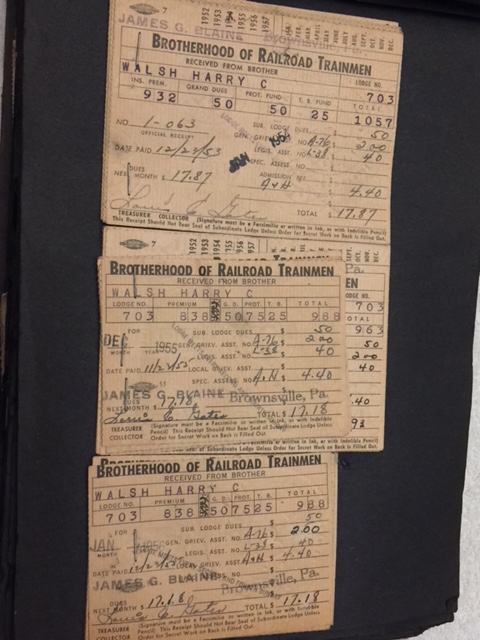 7 1952 1953 1954 1955 1956 1957
JAMES G. BLAINE Brownsville, Pa.
BROTHERHOOD OF RAILROAD TRAINMEN
RECEIVED FROM BROTHER
WALSH HARRY C LODGE NO. 703
INS. PREM. GRAND DUES PROT. FUND T. B. FUND TOTAL
932 50 50 25 1057
SUB. LODGE DUES $ 50
NO. 1-063 GEN. GRIEV. ASST. NO. A-76 2 00
OFFICIAL RECEIPT LEGIS. ASST. NO. L-38 40
DATE PAID 12/23/53 JAN 1954 SPEC. ASSESS. NO.
DUES NEXT MONTH $ 17.87 ADMISSION FEE
A&H 4.40
Louis E. Gates TOTAL $ 17.87
TREASURER COLLECTOR (Signature must be a Facsimile or written in Ink, or with Indelible Pencil)
This Receipt Should Not Bear Seal of Subordinate Lodge Unless Order for Secret Work on Back is Filled Out.
7 1952 1953 1954 1955 1956
Pa.
EN
LODGE NO.
703
TOTAL
963
50
2 00
40
.40
93
BROTHERHOOD OF RAILROAD TRAINMEN
RECEIVED FROM BROTHER
WALSH HARRY C
LODGE NO. PREMIUM G. D. PROT. T. B. TOTAL
703 838 507525 988
FOR SUB. LODGE DUES $ 50
DEC 1955 GEN. GRIEV. ASST. NO. A-76 2 00
MONTH YEAR L-38 40
11/23/55 LOCAL GRIEV. ASST.
SPEC. ASSESS. NO. A&H $ 4.40
JAMES G. BLAINE Brownsville, Pa.
DUES NEXT MONTH $ 17.18
Louis E. Gates TOTAL $ 17.18
TREASURER (Signature must be a Facsimile or written in Ink, or with Indelible Pencil)
COLLECTOR This Receipt Should Not Bear Seal of Subordinate Lodge Unless Order for Secret Work on Back is Filled Out.
BROTHERHOOD OF RAILROAD TRAINMEN
RECEIVED FROM BROTHER
WALSH HARRY C
LODGE NO. PREMIUM G. D. PROT. T. B. TOTAL
703 838 507525 988
FOR SUB. LODGE DUES $ 50
JAN 1956 GEN. GRIEV. ASST. NO. A-76 2 00
MONTH LEGIS. ASST. NO. L-38 40
DATE PAID 12/23/55 A&H 4.40
JAMES G. BLAINE Brownsville, Pa.
DUES NEXT MONTH $ 17.18
Louis E. Gates TOTAL $ 17.18
TREASURER (Signature must be a Facsimile or written in Ink, or with Indelible Pencil)
COLLECTOR This Receipt Should Not Bear Seal of Subordinate Lodge Unless Order for Secret Work on Back is Filled Out.